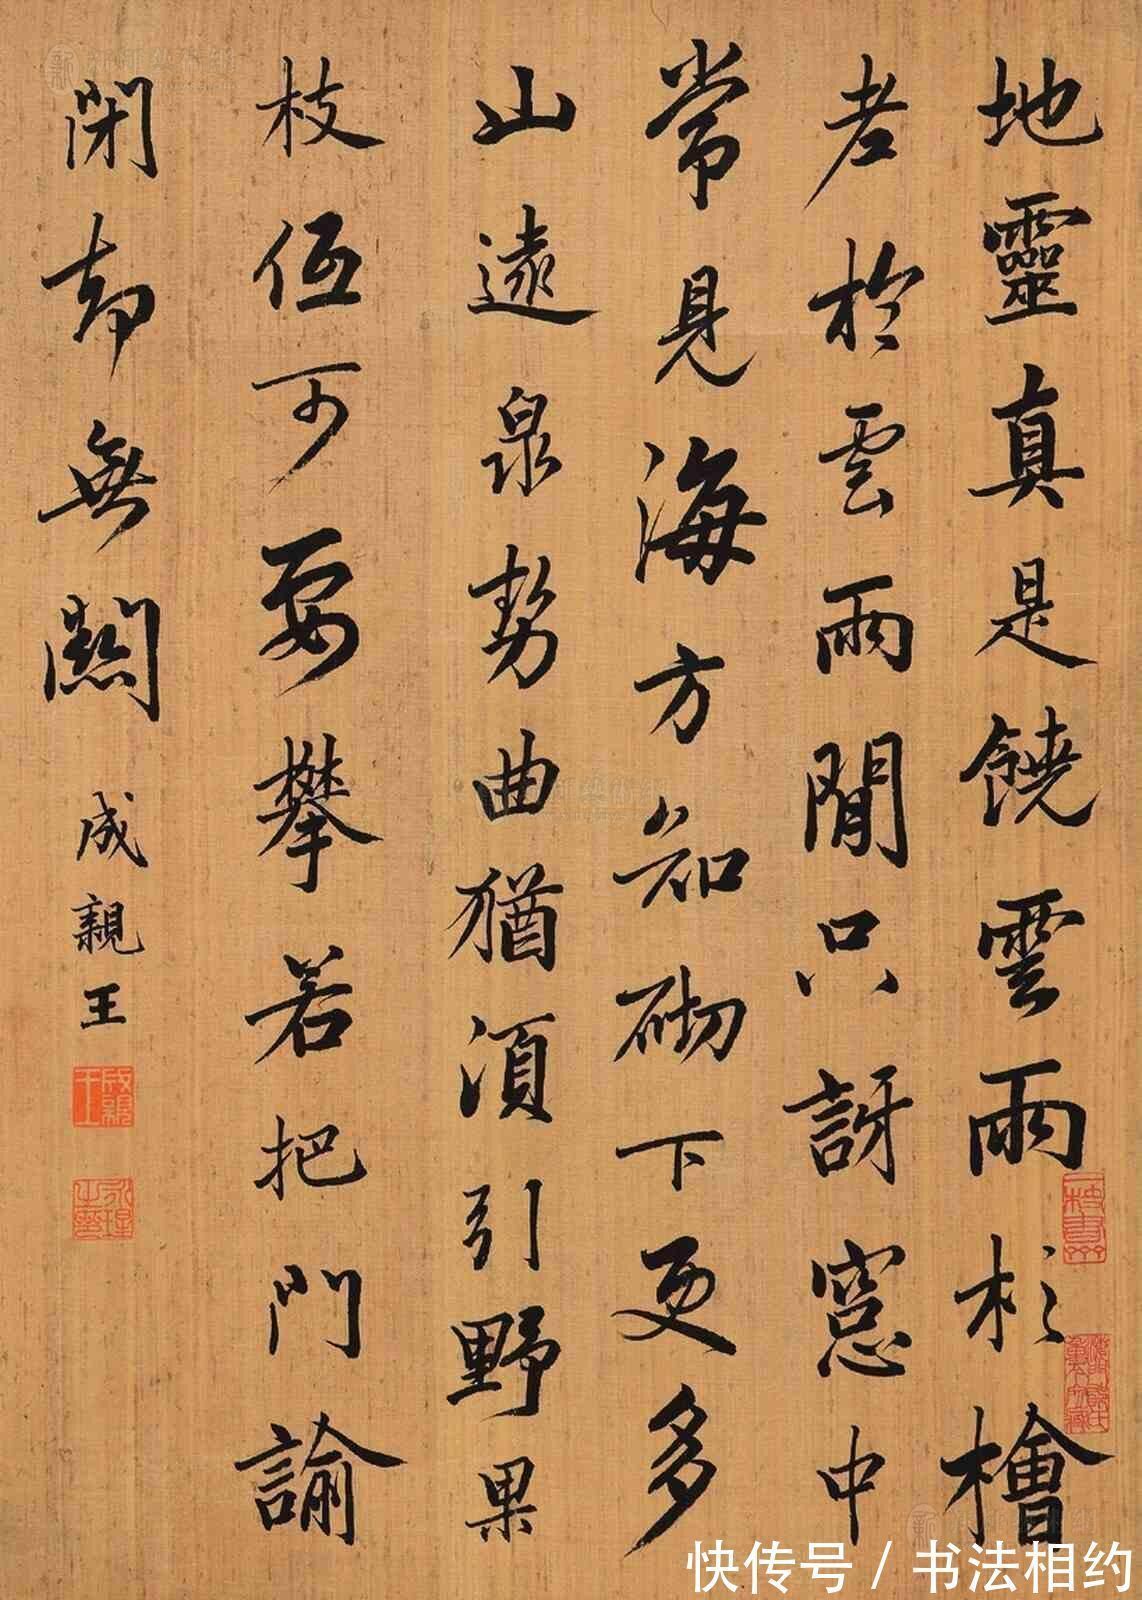 地靈真是饒雲雨杉檜
老於雲雨閒只訝窓中
常見海方知砌下更多
山遠泉勢曲猶須引野果
枝低可要攀若把門諭
閉却無關
成親王
成親王
快传号 / 书法相约